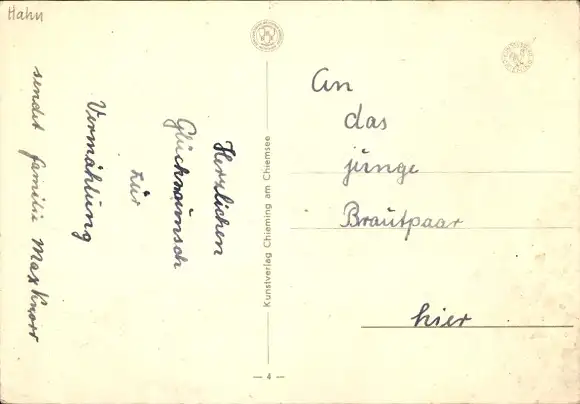 Hahn
Herzlichen
Glückwünsch
zur
Vermählüng
sendet familie Max Knorr
Kunstverlag Chieming am Chiemsee
— 4 —
An
das
jünge
Braütpaar
hier